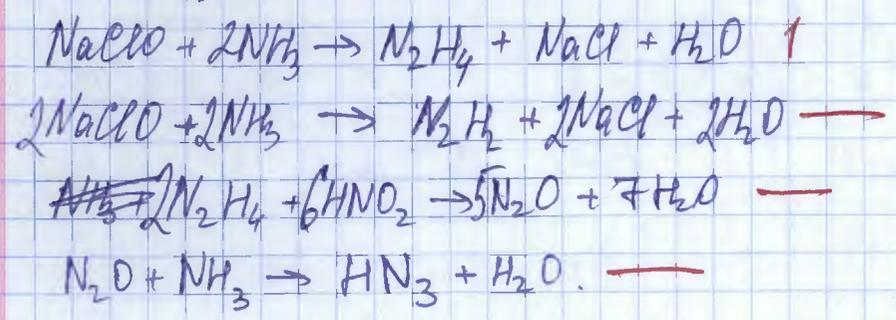 NaClO + 2NH₃ → N₂H₄ + NaCl + H₂O 1
2NaClO + 2NH₃ → N₂H₂ + 2NaCl + 2H₂O —
2N₂H₄ + 6HNO₂ → 5N₂O + 7H₂O —
N₂O + NH₃ → HN₃ + H₂O. —